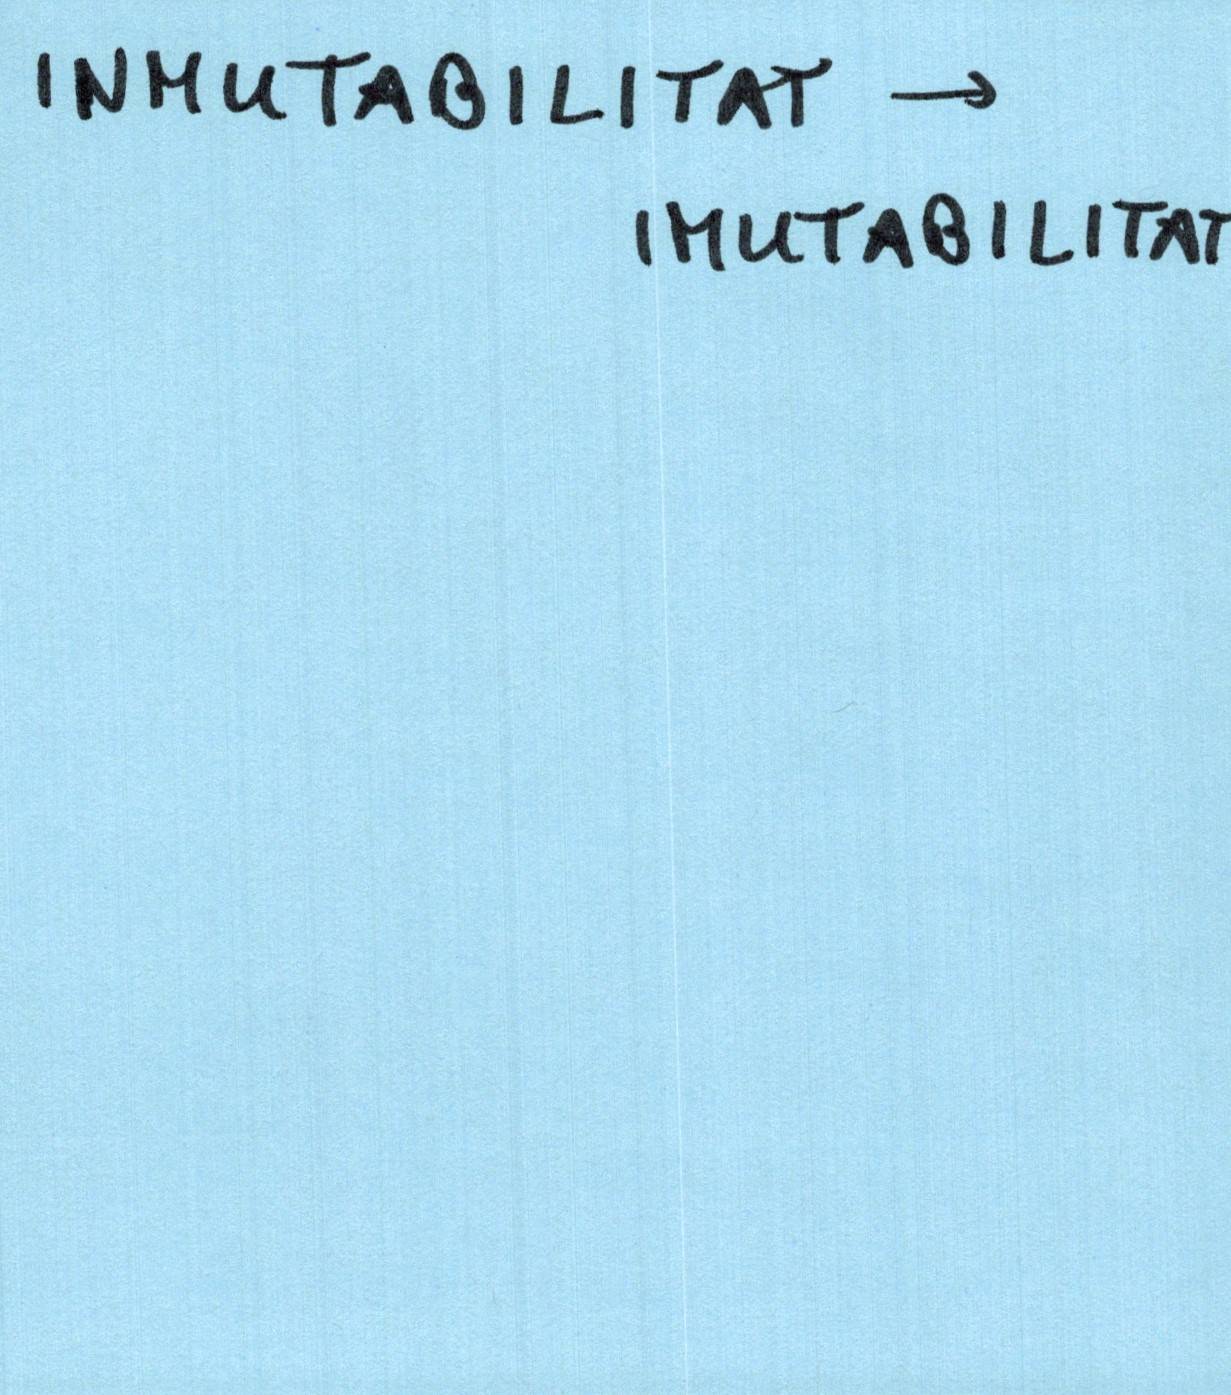 INMUTABILITAT →
IMUTABILITAT